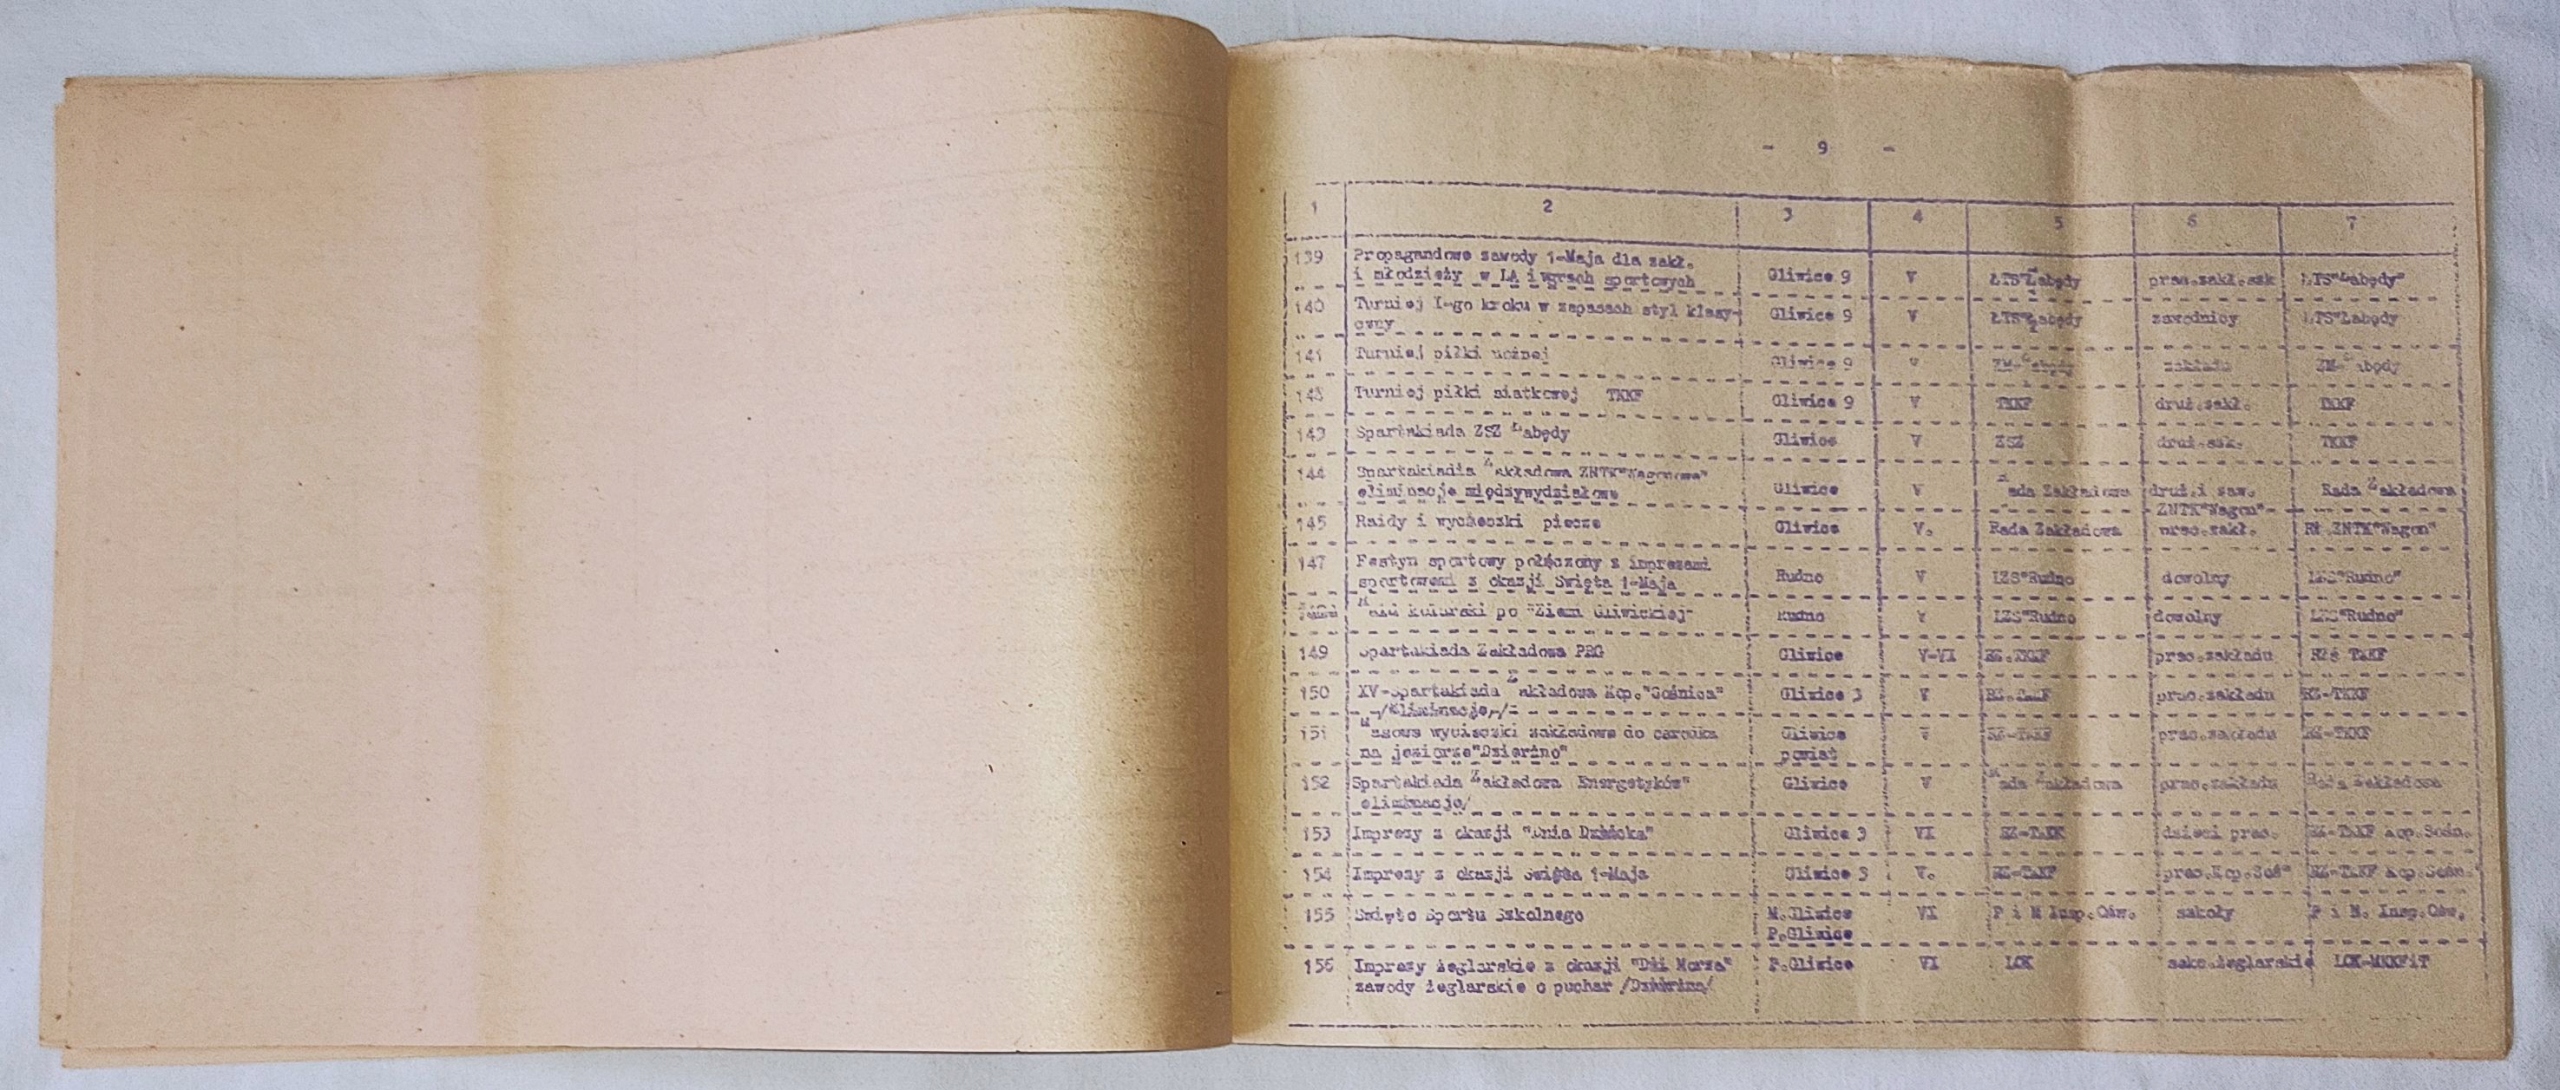 - 9 -
1 2 3 4 5 6 7
139 Propagandowe zawody 1-Maja dla zakł.
i młodzieży w LA i wgrach sportowych Gliwice 9 V ŁTS"Łabędy prac.zakł.szk ŁTS"Łabędy"
140 Turniej I-go kroku w zapasach styl klasy-
czny Gliwice 9 V ŁTS"Łabędy zawodnicy ŁTS"Łabędy
141 Turniej piłki nożnej Gliwice 9 V ZM-Łabędy zakładu ZM-Łabędy
148 Turniej piłki siatkowej TKKF Gliwice 9 V TKKF druż.zakł. TKKF
143 Spartakiada ZSZ Łabędy Gliwice V ZSZ druż.szk. TKKF
144 Spartakiadia Zakładowa ZNTK"Wagonowa"
eliminacje międzywydziałowe Gliwice V Rada Zakładowa druż.i zaw. Rada Zakładowa
ZNTK"Wagon"
145 Raidy i wycieczki piesze Gliwice V. Rada Zakładowa prac.zakł. RZ ZNTK"Wagon"
147 Festyn sportowy połączony z imprezami
sportowemi z okazji Swięta 1-Maja Rudno V LZS"Rudno dowolny LZS"Rudno"
Raid kolarski po "Ziemi Gliwickiej" Rudno V LZS"Rudno dowolny LZS"Rudno"
149 Spartakiada Zakładowa PRG Gliwice V-VI RZ.TKKF prac.zakładu TKKF
150 XV-Spartakiada Zakładowa Kop."Sośnica" Gliwice 3 V RZ.TKKF prac.zakładu RZ-TKKF
-/Eliminacje,/-
151 Masowe wycieczki zakładowe do ośrodka Gliwice V RZ-TKKF prac.zakładu RZ-TKKF
na jeziorze"Dzierżno" powiat
152 Spartakiada Zakładowa Energetyków" Gliwice V Rada Zakładowa prac.zakładu Rada Zakładowa
eliminacje/
153 Imprezy z okazji "Dnia Dziecka" Gliwice 3 VI RZ-TKKF dzieci prac. RZ-TKKF kop.Sośn.
154 Imprezy z okazji Święta 1-Maja Gliwice 3 V. RZ-TKKF prac.Kop.Soś" RZ-TKKF kop.Sośn."
155 Swięto Sportu Szkolnego M.Gliwice VI P i M Insp.Ośw. szkoły P i M. Insp.Ośw.
P.Gliwice
156 Imprezy żeglarskie z okazji "Dni Morza" P.Gliwice VI LOK sekc.żeglarskie LOK-MKKFiT
zawody żeglarskie o puchar /Dzierżno/